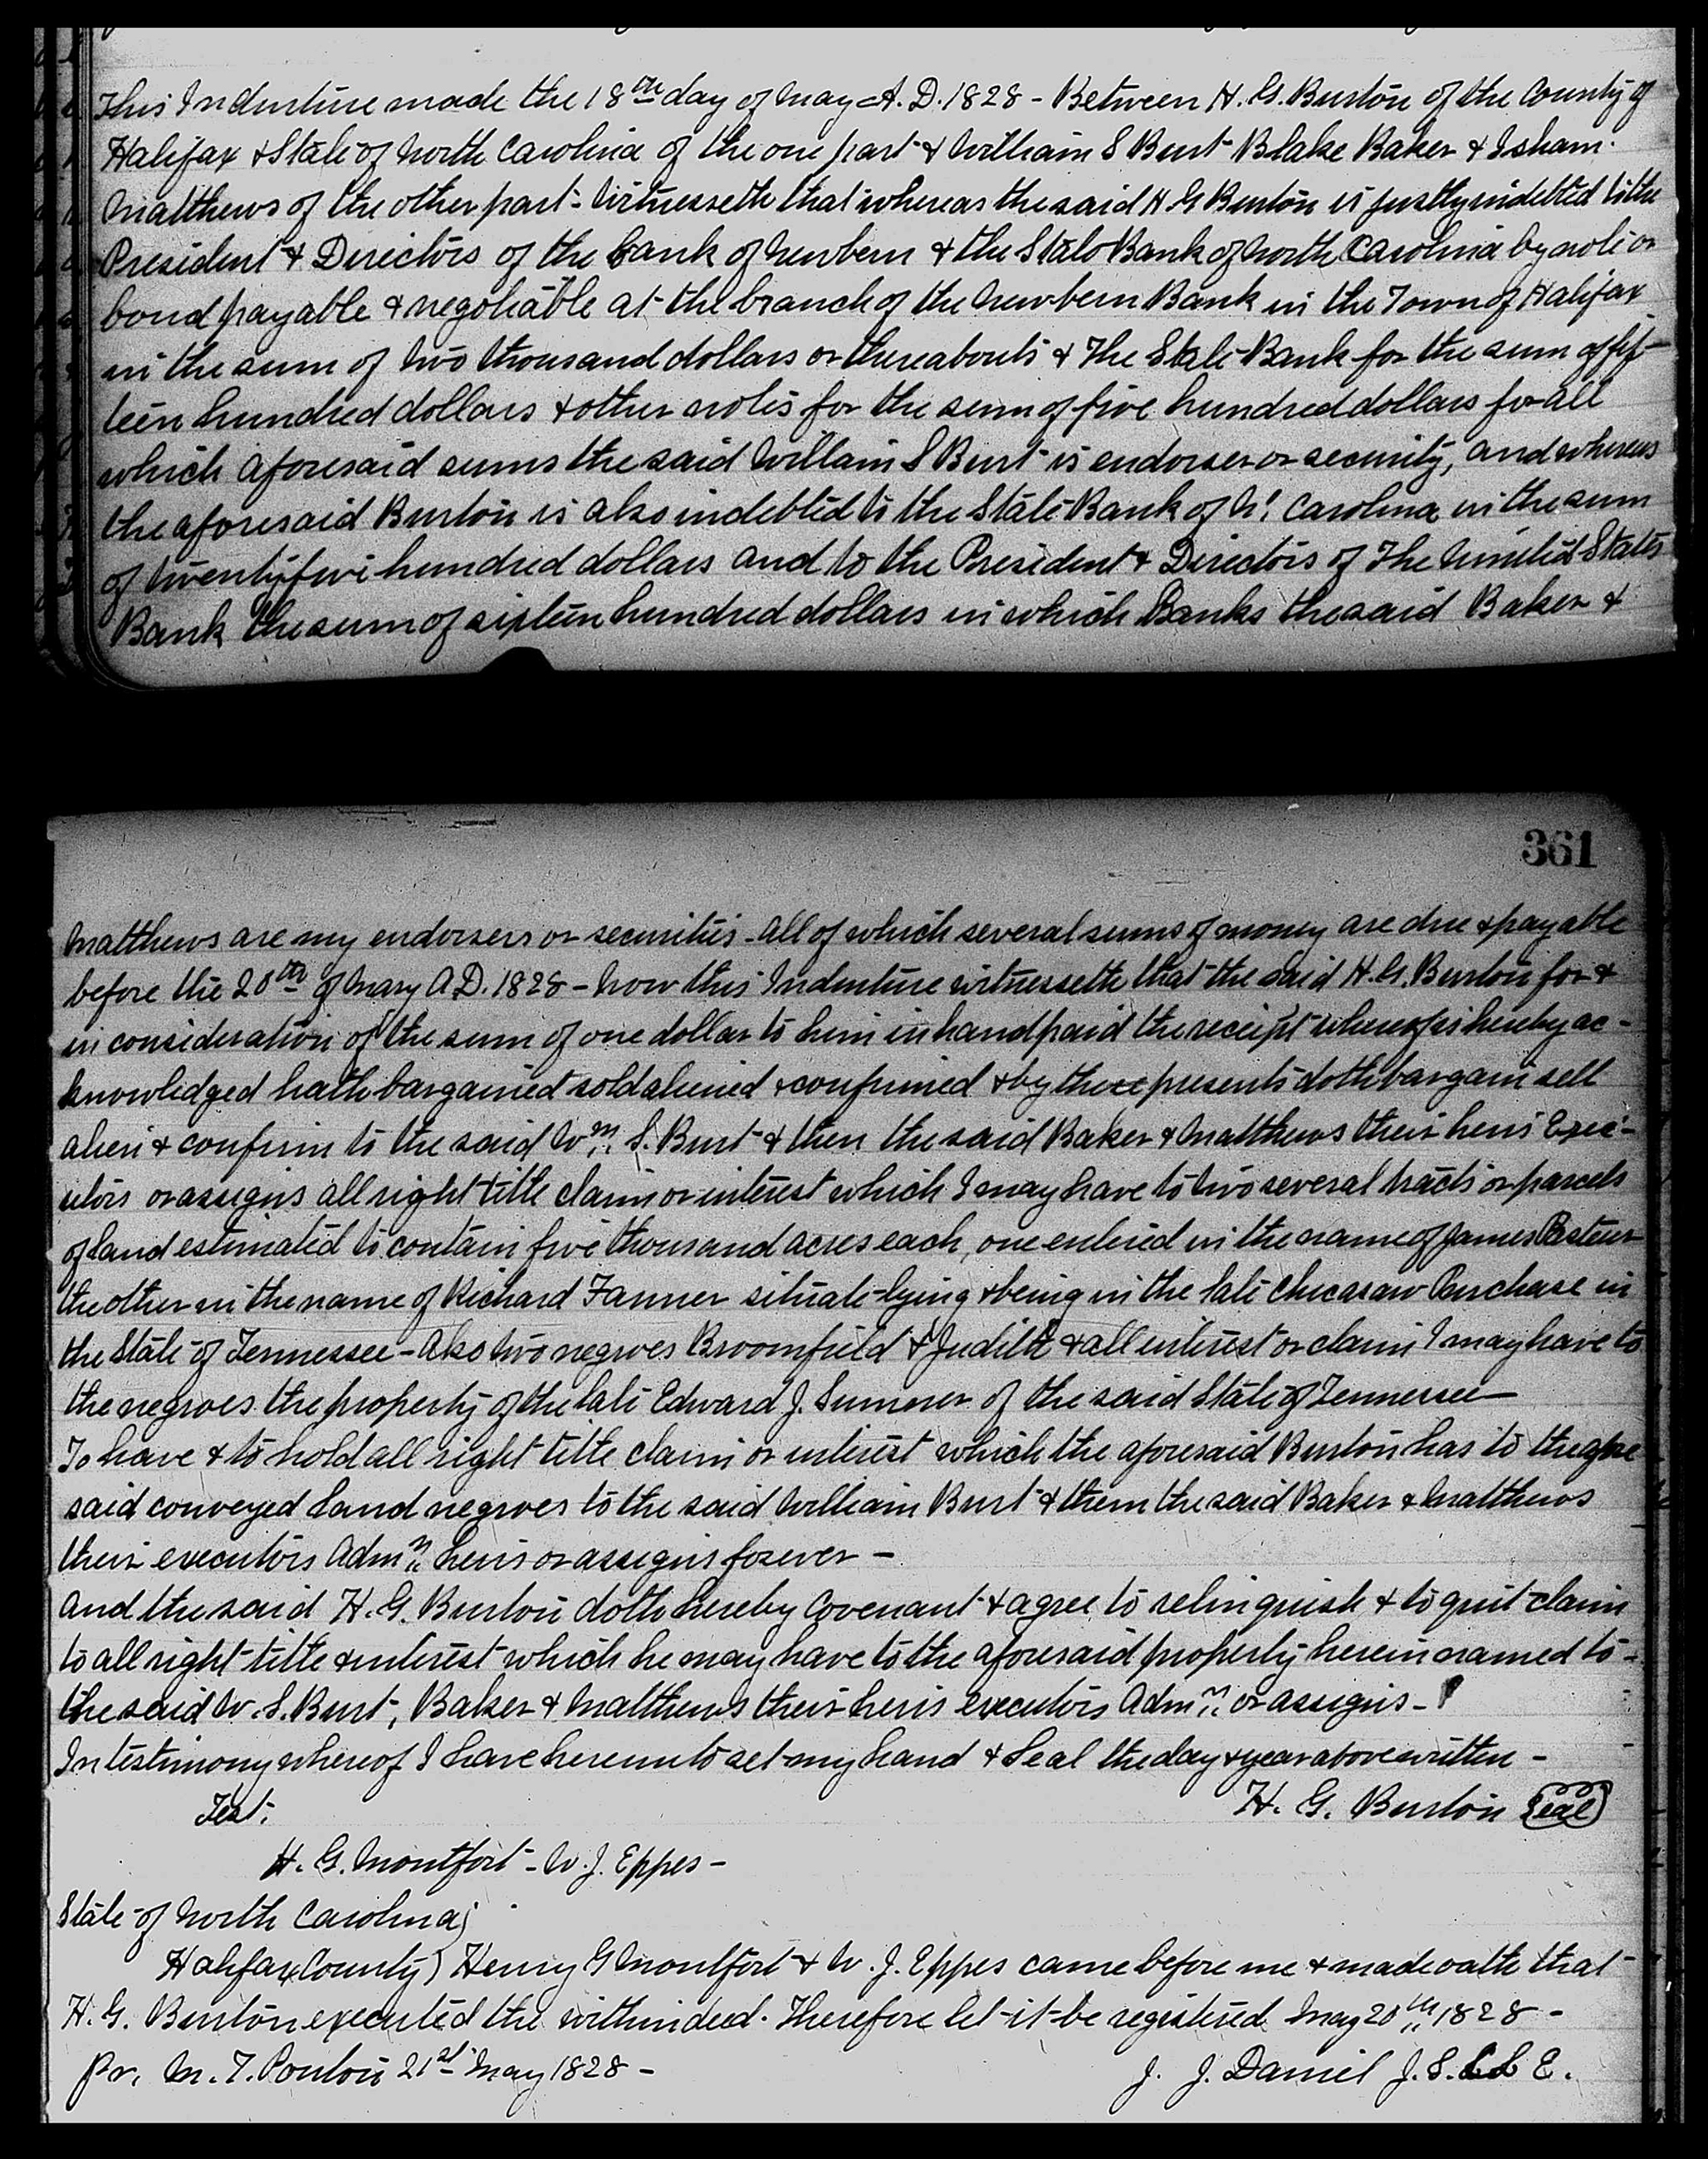 This Indenture made the 18th day of May A.D. 1828 - Between H. G. Burton of the County of
Halifax & State of North Carolina of the one part & William S Burt Blake Baker & Isham
Matthews of the other part - Witnesseth that whereas the said H G Burton is justly indebted to the
President & Directors of the bank of Newbern & the State Bank of North Carolina by note or
bond payable & negotiable at the branch of the Newbern Bank in the Town of Halifax
in the sum of two thousand dollars or thereabouts & The State Bank for the sum of fif-
teen hundred dollars & other notes for the sum of five hundred dollars for all
which aforesaid sums the said William S Burt is endorser or security, and whereas
the aforesaid Burton is also indebted to the State Bank of N. Carolina in the sum
of twenty five hundred dollars and to the President & Directors of The United States
Bank the sum of sixteen hundred dollars in which Banks the said Baker &
361
Matthews are my endorsers or securities - all of which several sums of money are due & payable
before the 20th of May A D. 1828 - Now this Indenture witnesseth that the said H. G. Burton for &
in consideration of the sum of one dollar to him in hand paid the receipt whereof is hereby ac-
knowledged hath bargained sold aliened & confirmed & by these presents doth bargain sell
alien & confirm to the said Wm. S. Burt & then the said Baker & Matthews their heirs Exec-
utors or assigns all right title claim or interest which I may have to two several tracts or parcels
of land estimated to contain five thousand acres each, one entered in the name of James Pasteur
the other in the name of Richard Fanner situate lying & being in the late Chicasaw Purchase in
the State of Tennessee - Also two negroes Broomfield & Judith & all interest or claim I may have to
the negroes the property of the late Edward J. Sumner of the said State of Tennessee
To have & to hold all right title claim or interest which the aforesaid Burton has to the afore
said conveyed land negroes to the said William Burt & them the said Baker & Matthews
their executors Admrs. heirs or assigns forever -
And the said H. G. Burton doth hereby Covenant & agree to relinquish & to quit claim
to all right title & interest which he may have to the aforesaid property herein named to -
the said W. S. Burt, Baker & Matthews their heirs executors Admrs. or assigns -
In testimony whereof I have hereunto set my hand & Seal the day & year above written -
H. G. Burton Seal
Test.
H. G. Montfort - W. J. Eppes -
State of North Carolina
Halifax County) Henry G Montfort & W. J. Eppes came before me & made oath that
H. G. Burton executed the within deed. Therefore let it be registered May 20th 1828 -
pr. M. T. Ponton 21st May 1828 -
J. J. Daniel J. S. C L E.